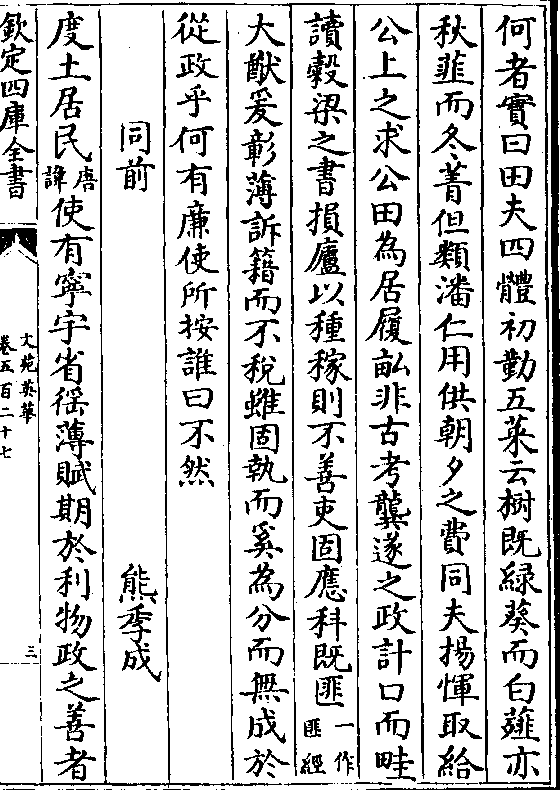 何者實曰田夫四體初勤五菜云樹既緑葵而白薤亦
秋韮而冬菁但類潘仁用供朝夕之費同夫揚惲取給
公上之求公田為居履畝非古考龔遂之政計口而畦
讀穀梁之書損廬以種稼則不善吏固應科既匪一作匪經
大猷爰彰薄訴籍而不稅雖固執而奚為分而無成於
從政乎何有廉使所按誰曰不然
同前 熊季成
度土居民唐諱使有寧宇省徭薄賦期於利物政之善者
欽定四庫全書
文苑英華
卷五百二十七
三